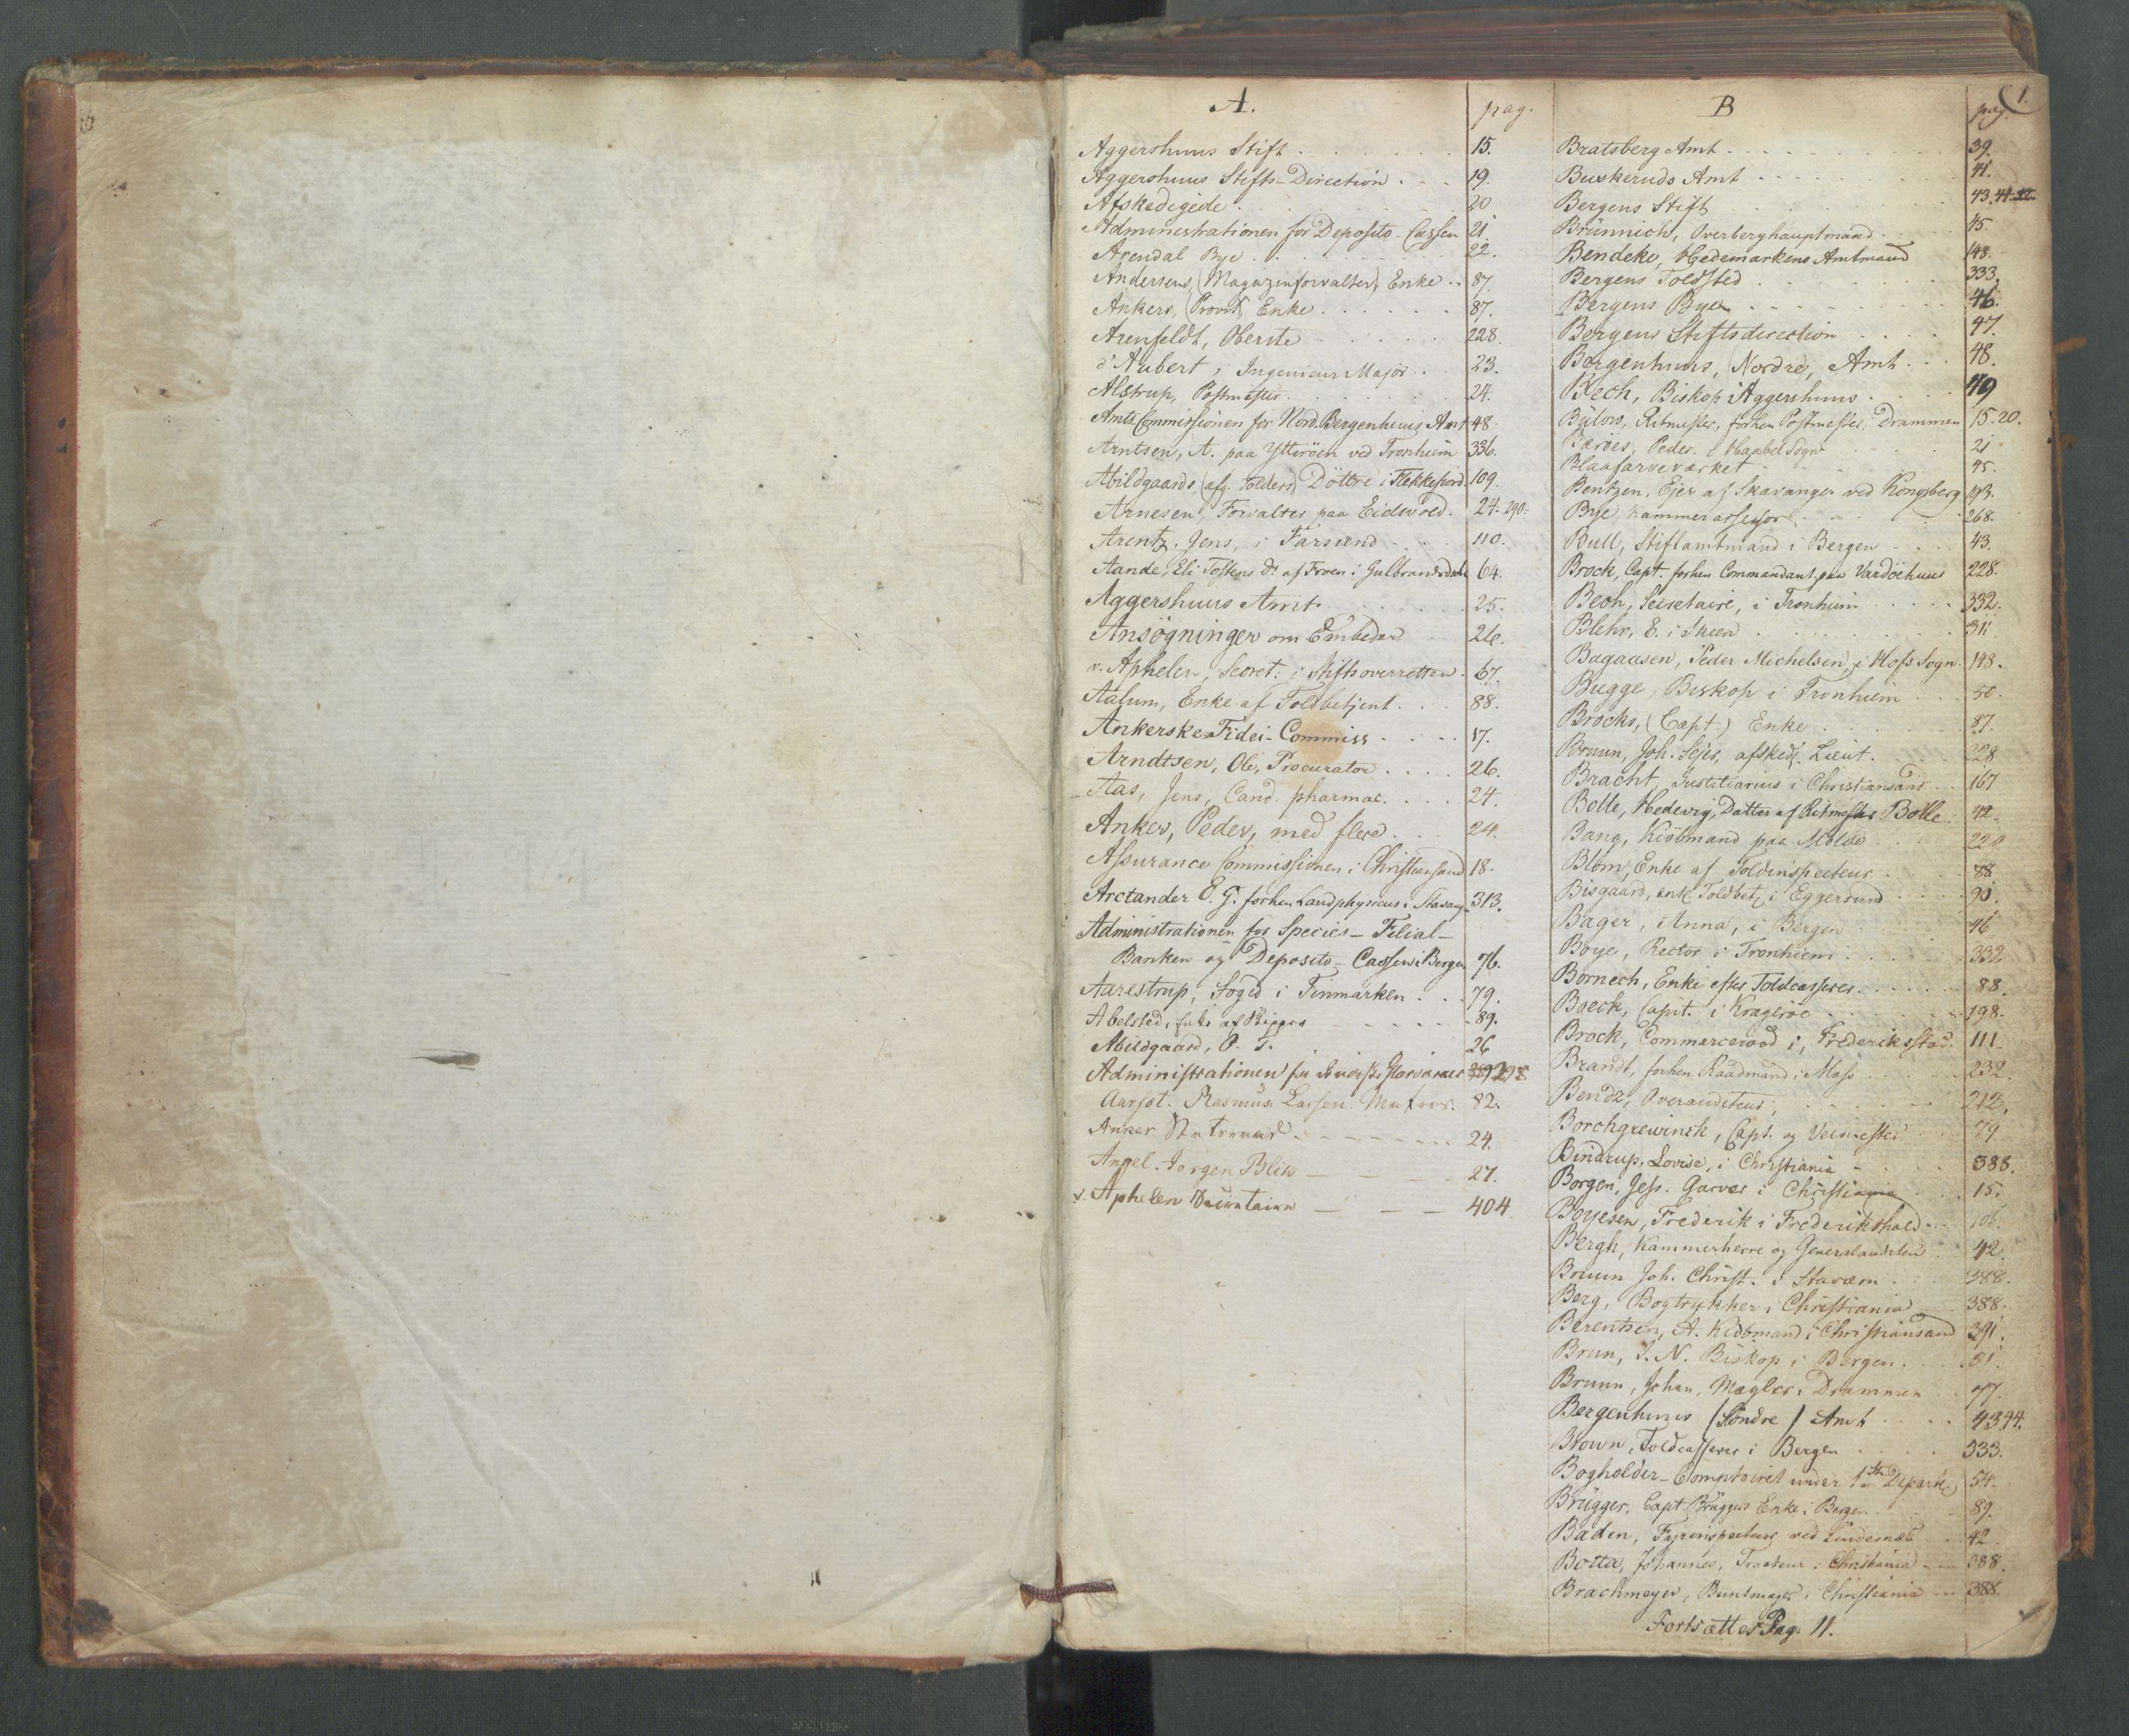 1.
A. pag.
Aggershuus Stift 15.
Aggershuus Stifts-Direction 19.
Afskedigede 20
Administrationen for Deposito-Cassen 21
Arendal Bye 22.
Andersens, (Magazinforvalter) Enke 87.
Ankers, (Provst) Enke 87.
Arenfeldt, Oberste 228.
d'Aubert, Ingenieur Major 23.
Alstrup, Postmester 24.
Amts Commissionen for Nord. Bergenhuus Amt 48
Arntsen, A. paa Ytterøen ved Tronhiem 336.
Abildgaards, (afg. Tolders) Döttre i Flekkefiord 109.
Arnesen, Forvalter paa Eidsvold. 24. 290.
Arentz. Jens, i Farsund 110.
Aande, Eli Tostens Dr. af Froen i Gulbrandsdalen 64.
Aggershuus Amt 25.
Ansøgninger om Embeder 26.
v. Aphelen, Secret. i Stiftsoverretten 67.
Aalum, Enke af Toldbetjent 88.
Ankerske Fidei-Commiss 17.
Arndtsen, Ole, Procurator 26.
Aas, Jens, Cand. pharmac. 24.
Anker, Peder, med flere 24.
Assurance Commissionen i Christiansand 18.
Arctander E. G. forhen Landphysicus i Stavang. 313.
Administrationen for Species-Filial-
Banken og Deposito-Cassen i Bergen 76.
Aarestrup, Foged i Finmarken 79.
Abelsted, 89.
Abildgaard, P. T. 26
Administrationen 298.
Aarset. Rasmus Larsen. 82.
Anker 24.
Angel. Jørgen Blix 27.
v. Aphelen 404
B pag.
Bratsberg Amt 39.
Buskeruds Amt 41.
Bergens Stift 43. 44
Brünnich, Overberghauptmand 45.
Bendeke, Hedemarkens Amtmand 148.
Bergens Toldsted 333.
Bergens Bye 46.
Bergens Stiftsdirection 47.
Bergenhuus, (Nordre), Amt 48.
Bech, Biskop i Aggershuus 49
Bülow, Ritmester, forhen Postmester, Drammen 15. 20.
Peder. i Haabel Sogn 21
Blaafarveværket 45.
Bentzen, Ejer af Skavanger ved Kongsberg 193.
Bye Kammerassessor 268.
Bull, Stiftamtmand i Bergen 43.
Brock, Capt. forhen Commandant paa Vardöehuus 228.
Bech, Secretaire, i Tronhiem 332.
Blehr, E. i Skeen 311
Bagaasen, Peder Michelsen, i Hofs Sogn 148.
Bugge, Biskop i Tronhiem 50.
Brocks, (Capt) Enke 87
Bruun, Joh. Sejer, afskeds. Lieut. 228
Bracht, Justitiarius i Christiansand 167
Bolle, Hedevig, Datter af Ritmester Bolle 42.
Bang, Kiöbmand paa Molde 220
Blom, Enke af Toldinspecteur 88.
Bisgaard, enk. Toldbetj. i Eggersund 90.
Bager, Anna, i Bergen 46
Boye, Rector i Tronhiem 332
Bornech, Enke efter Toldcasserer 88.
Baeck, Capt. i Krageröe 198.
Brock, Commerceraad i, Frederiksstad. 111.
Brandt, forhen Raadmand i Moss 232.
Bendz, Overauditeur, 212,
Borchgrewinck, Capt. og Veimester 79
Bindrup, Lovise, i Christiania 388.
Borgen, Jess. Garver i Christiania 15.
Boyesen, Frederik i Frederikshald 106.
Bergh, Kammerherre og Generalauditeur 42.
Bruun Joh. Christ. i Staværn 388.
Berg, Bogtrykker i Christiania 388.
Berentsen, A. Kiöbmand i Christiansand 391.
Brun, J. N. Biskop i Bergen. 51.
Bruun, Johan, Mægler i Drammen 77.
Bergenhuus (Söndre) Amt 43 94.
Brown, Toldcasserer i Bergen 333.
Bogholder-Comptoiret under 1ste Departe. 54.
Brügger, Capt Brüggers Enke i Bergen 89.
Baden, Fyrinspecteur ved Lindernæs 42
Botta, Johannes, Tracteur i Christiania 388.
Brachmeyer, Buntmager i Christiania 388.
Fortsættes Pag. 11.